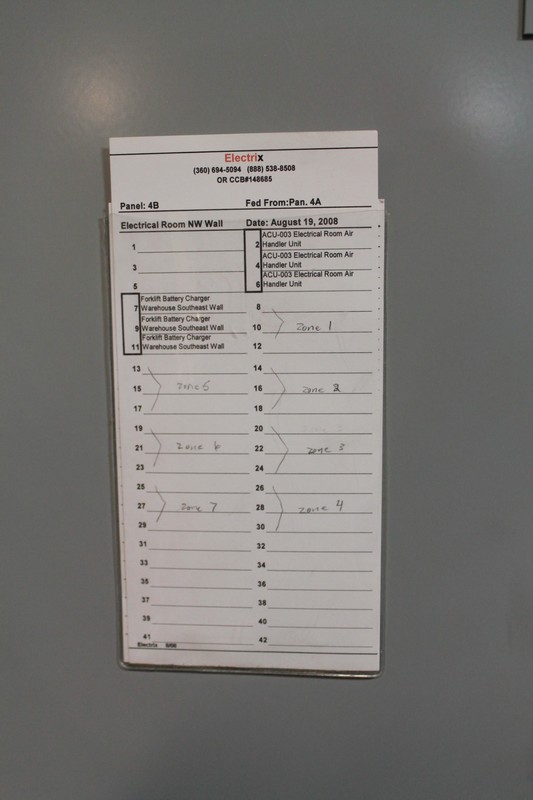 Electrix
(360) 694-5094 (888) 538-8508
OR CCB#148685
Panel: 4B Fed From:Pan. 4A
Electrical Room NW Wall Date: August 19, 2008
1
2 ACU-003 Electrical Room Air
Handler Unit
3
4 ACU-003 Electrical Room Air
Handler Unit
5
6 ACU-003 Electrical Room Air
Handler Unit
7 Forklift Battery Charger
Warehouse Southeast Wall
8
9 Forklift Battery Charger
Warehouse Southeast Wall
10 zone 1
11 Forklift Battery Charger
Warehouse Southeast Wall
12
13 14
15 zone 5 16 zone 2
17 18
19 20
21 zone 6 22 zone 3
23 24
25 26
27 zone 7 28 zone 4
29 30
31 32
33 34
35 36
37 38
39 40
41 42
Electrix 9/96